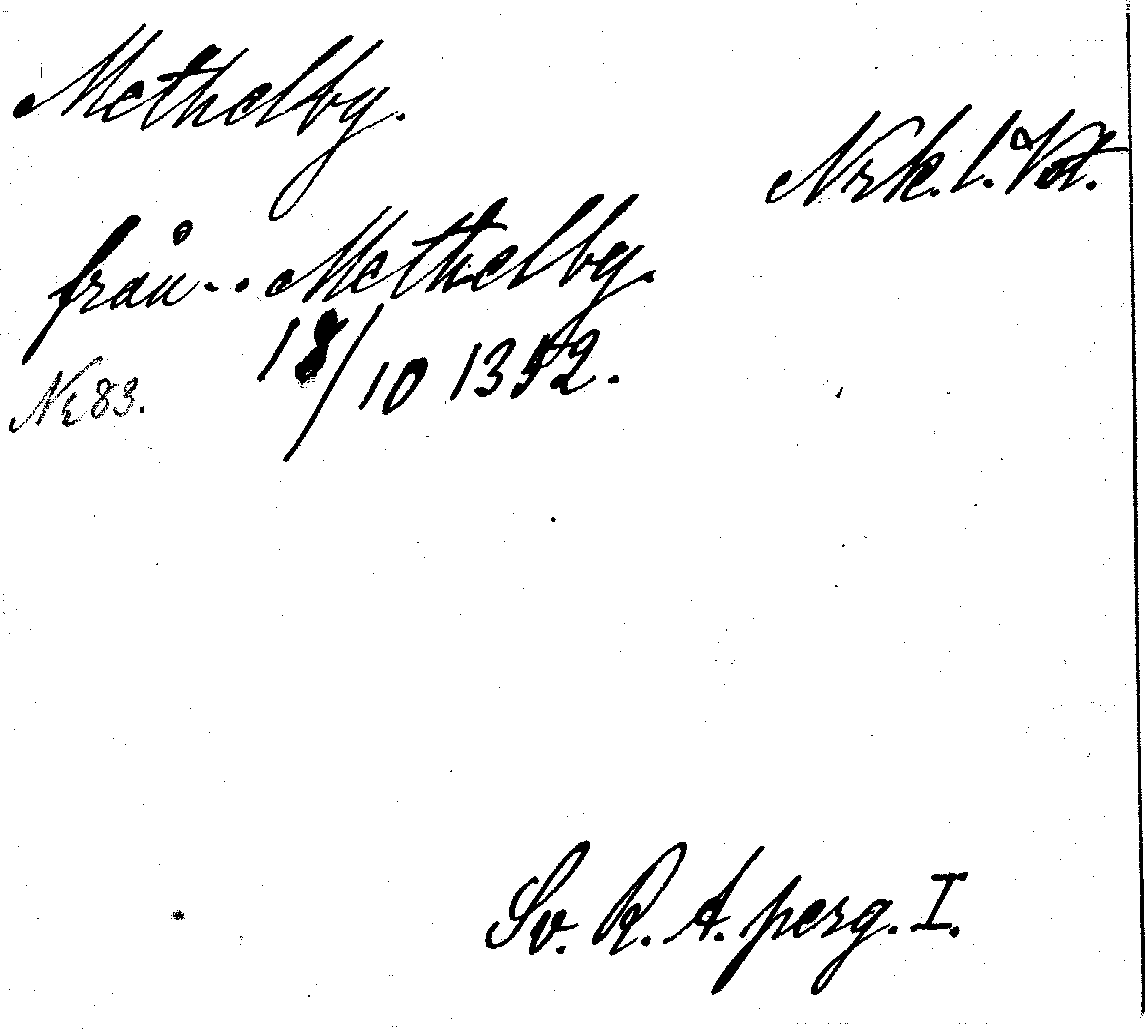 Methelby.
Nrk. l. Vst.
från .. Methelby.
18/10 1352.
Nr 83.
Sv. R. A. perg. I.